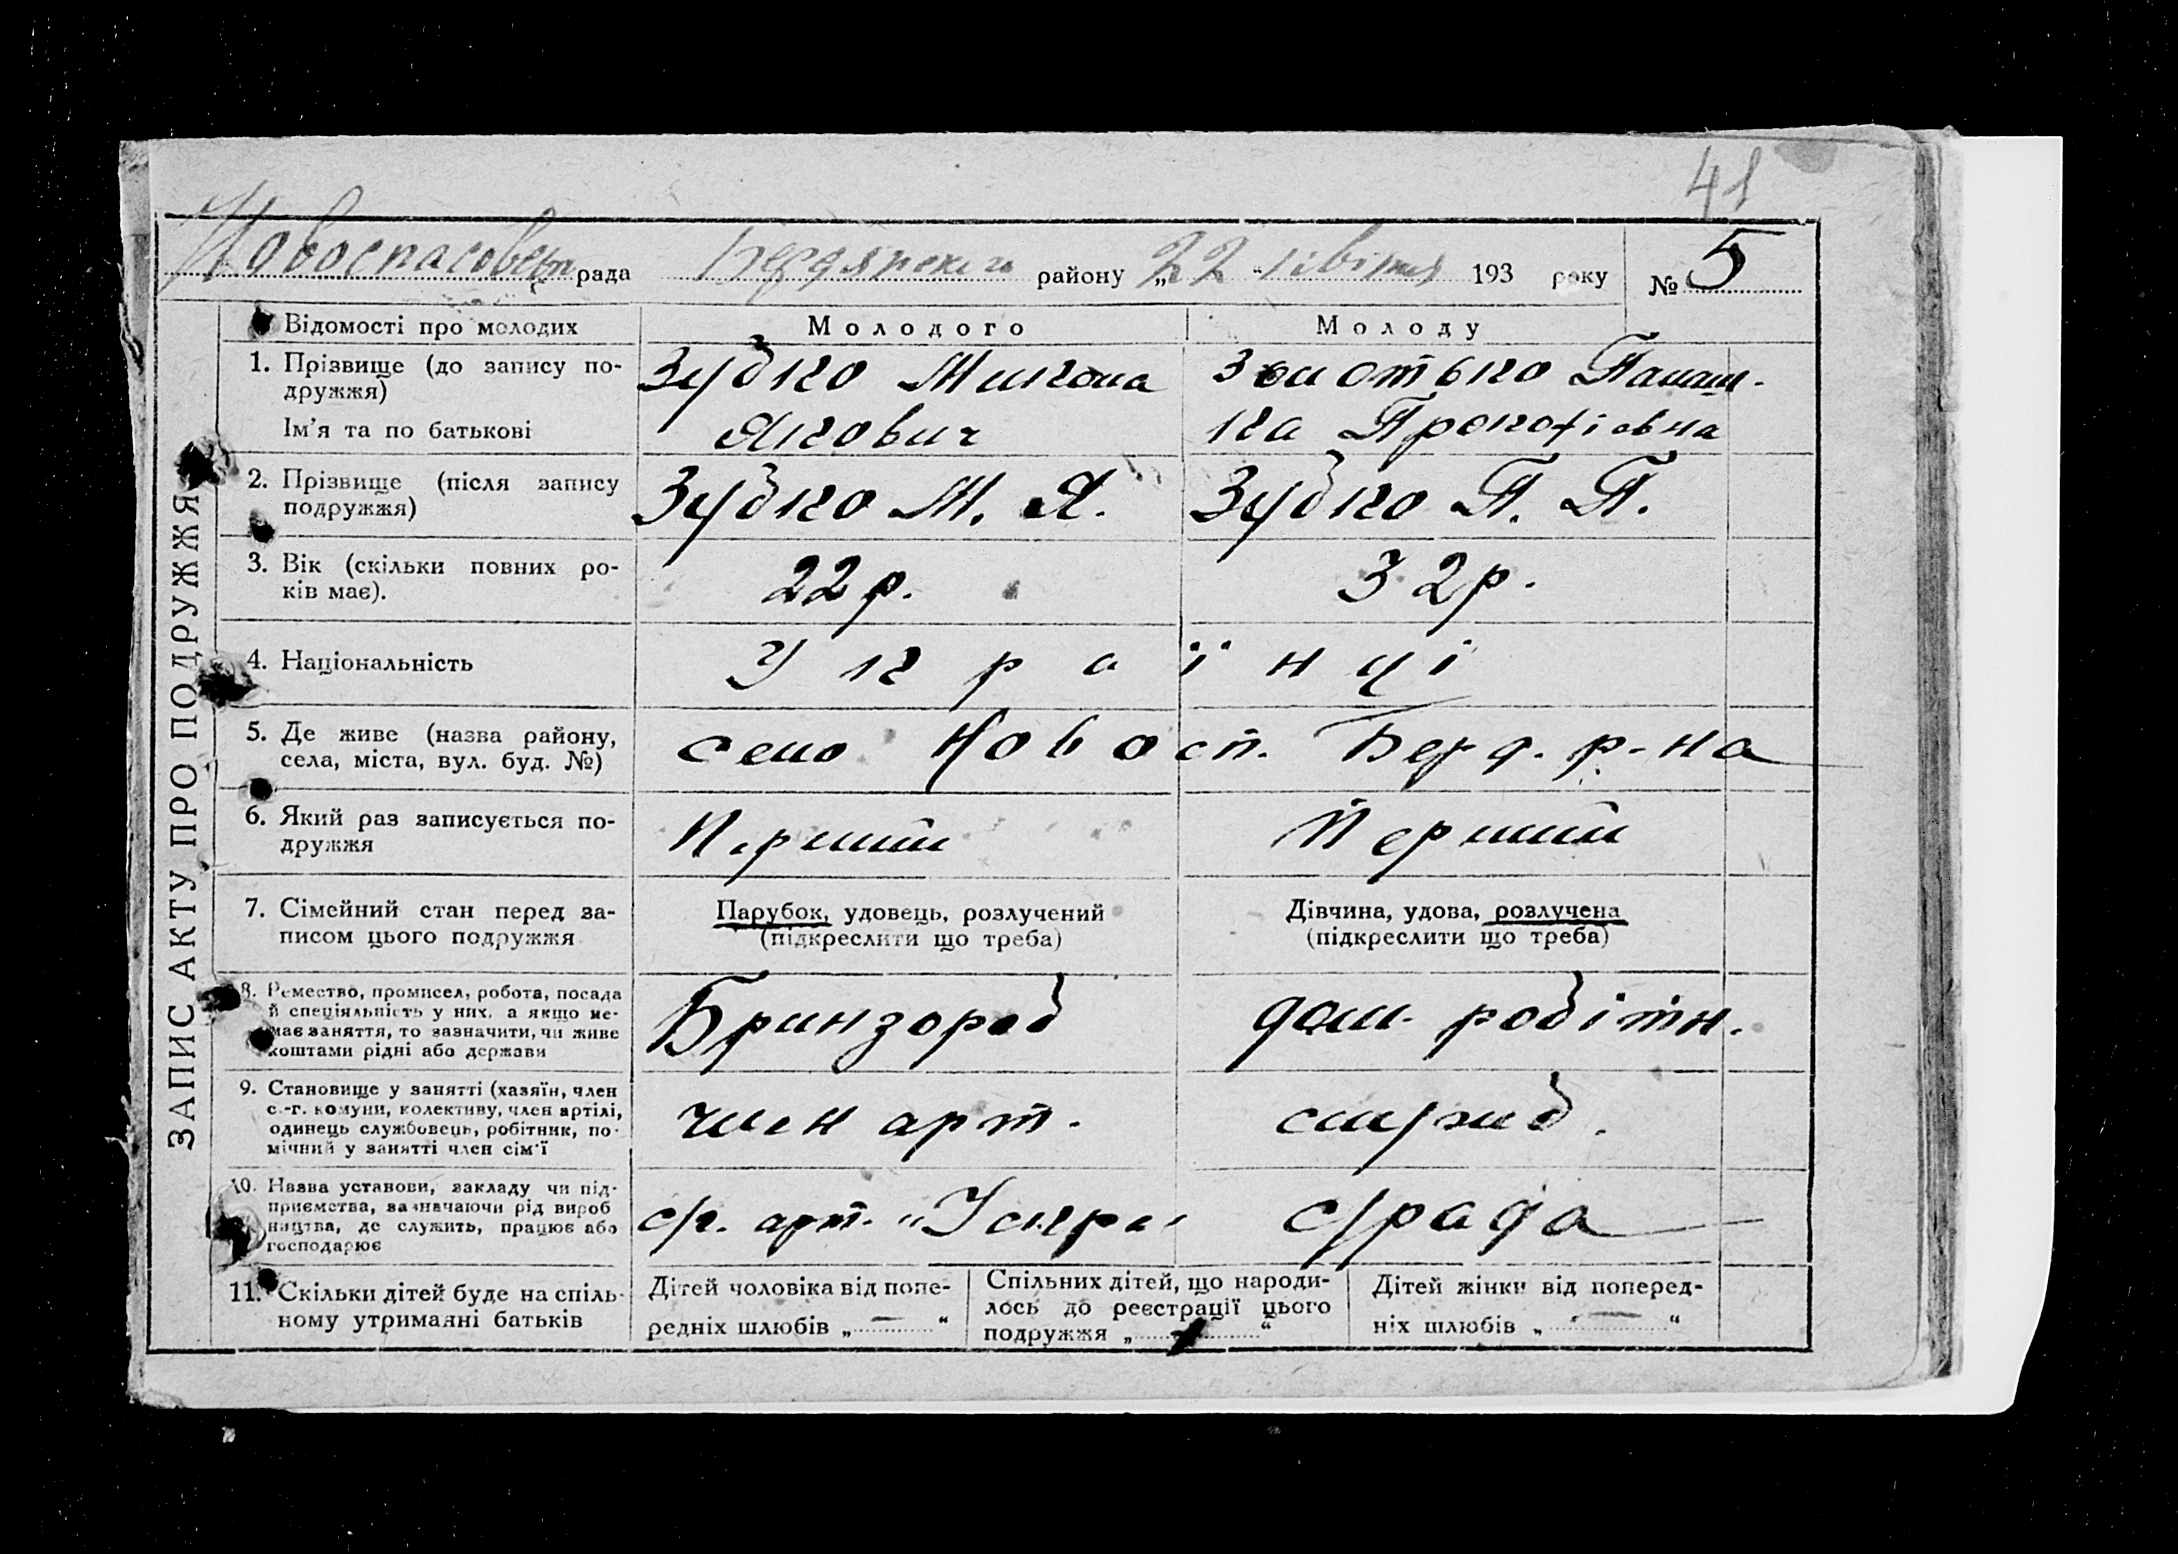 41
Новоспасовськ рада Бердянського району „22“ квітня 193 року № 5
ЗАПИС АКТУ ПРО ПОДРУЖЖЯ
Відомості про молодих Молодого Молоду
1. Прізвище (до запису по-
дружжя)
Ім'я та по батькові
Зубко Микола
Якович
Золотько Панаш-
ка Прокофіовна
2. Прізвище (після запису
подружжя)
Зубко М. Я.
Зубко П. П.
3. Вік (скільки повних ро-
ків має).
22 р.
32 р.
4. Національність
Українці
5. Де живе (назва району,
села, міста, вул. буд. №)
село Новосп. Берд. р-на
6. Який раз записується по-
дружжя
Перший
Перший
7. Сімейний стан перед за-
писом цього подружжя
Парубок, удовець, розлучений
(підкреслити що треба)
Дівчина, удова, розлучена
(підкреслити що треба)
8. Ремество, промисел, робота, посада
й спеціяльність у них, а якщо не-
має заняття, то зазначити, чи живе
коштами рідні або держави
Бринзороб
дом. робітн.
9. Становище у занятті (хазяїн, член
с.-г. комуни, колективу, член артілі,
одинець службовець, робітник, по-
мічний у занятті член сім'ї
член арт.
10. Назва установи, закладу чи під-
приємства, зазначаючи рід вироб
ництва, де служить, працює або
господарює
с/г. арт. „Іскра“
с/рада
11. Скільки дітей буде на спіль-
ному утриманні батьків
Дітей чоловіка від попе-
редніх шлюбів „ — “
Спільних дітей, що народи-
лось до реєстрації цього
подружжя „ 1 “
Дітей жінки від поперед-
ніх шлюбів „ — “